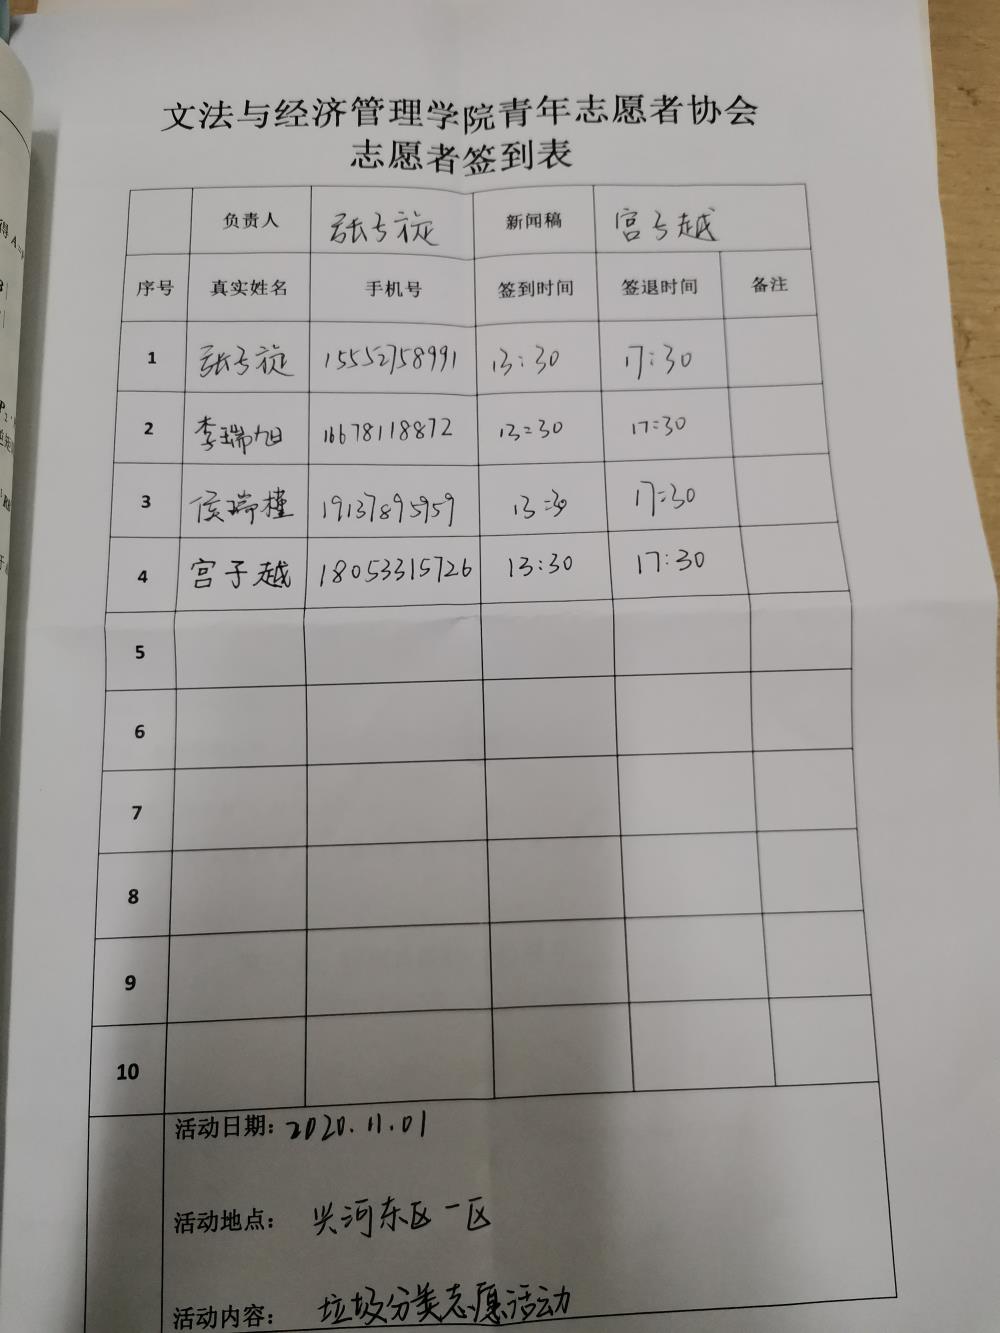 文法与经济管理学院青年志愿者协会
志愿者签到表
负责人 张子旋 新闻稿 宫子越
序号 真实姓名 手机号 签到时间 签退时间 备注
1 张子旋 15552758991 13:30 17:30
2 李瑞旭 16678118872 13:30 17:30
3 侯瑞槿 19137895959 13:30 17:30
4 宫子越 18053315726 13:30 17:30
5
6
7
8
9
10
活动日期: 2020.11.01
活动地点: 兴河东区一区
活动内容: 垃圾分类志愿活动